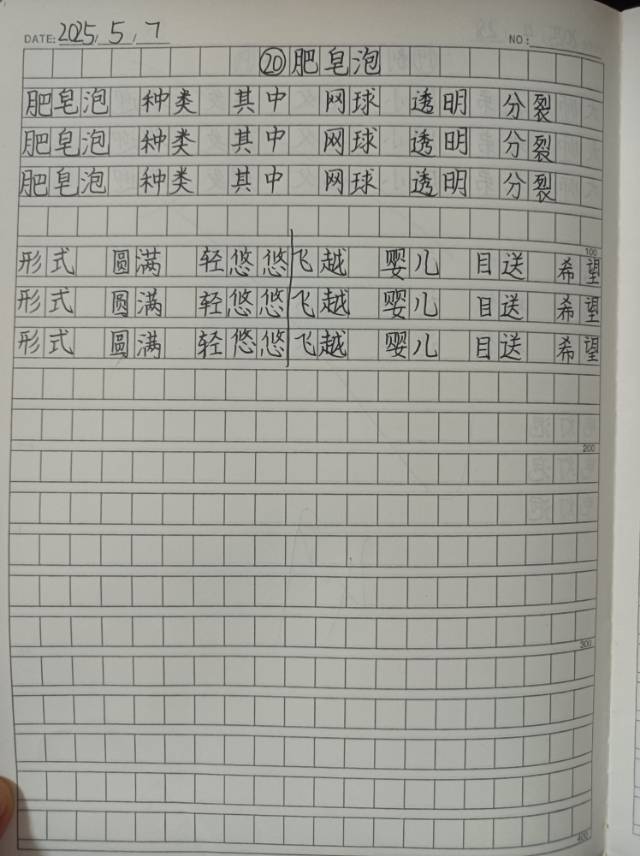 DATE: 2025, 5, 7 NO:
⑳肥皂泡
肥皂泡 种类 其中 网球 透明 分裂
肥皂泡 种类 其中 网球 透明 分裂
肥皂泡 种类 其中 网球 透明 分裂
100
形式 圆满 轻悠悠 飞越 婴儿 目送 希望
形式 圆满 轻悠悠 飞越 婴儿 目送 希望
形式 圆满 轻悠悠 飞越 婴儿 目送 希望
200
300
400